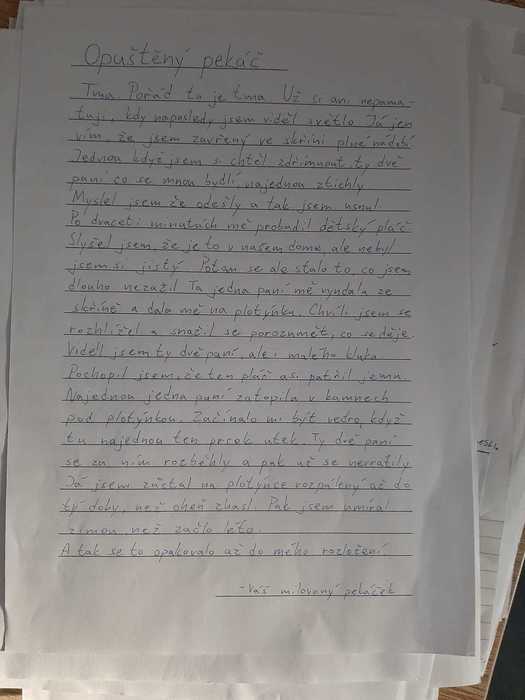 Opuštěný pekáč
Tma. Pořád ta je tma. Už si ani nepama-
tuji, kdy naposledy jsem viděl světlo. Já jen
vím, že jsem zavřený ve skříni plné nádobí
Jednou když jsem si chtěl zdřímnout, ty dvě
paní co se mnou bydlí, najednou ztichly
Myslel jsem že odešly a tak jsem usnul
Po dvaceti minutách mě probudil dětský pláč
Slyšel jsem, že je to v našem domě, ale nebyl
jsem si jistý. Potom se ale stalo to, co jsem
dlouho nezažil. Ta jedna paní mě vyndala ze
skříně a dala mě na plotýnku. Chvíli jsem se
rozhlížel a snažil se porozumět, co se děje.
Viděl jsem ty dvě paní, ale i malého kluka
Pochopil jsem, že ten pláč asi patřil jemu.
Najednou jedna paní zatopila v kamnech
pod plotýnkou. Začínalo mi být vedro, když
tu najednou ten prcek utek. Ty dvě paní
se za ním rozběhly a pak už se nevrátily
Já jsem zůstal na plotýnce rozpálený až do
tý doby, než oheň zhasl. Pak jsem umíral
zimou, než začlo léto.
A tak se to opakovalo až do mého rozložení
-Váš milovaný pekáček